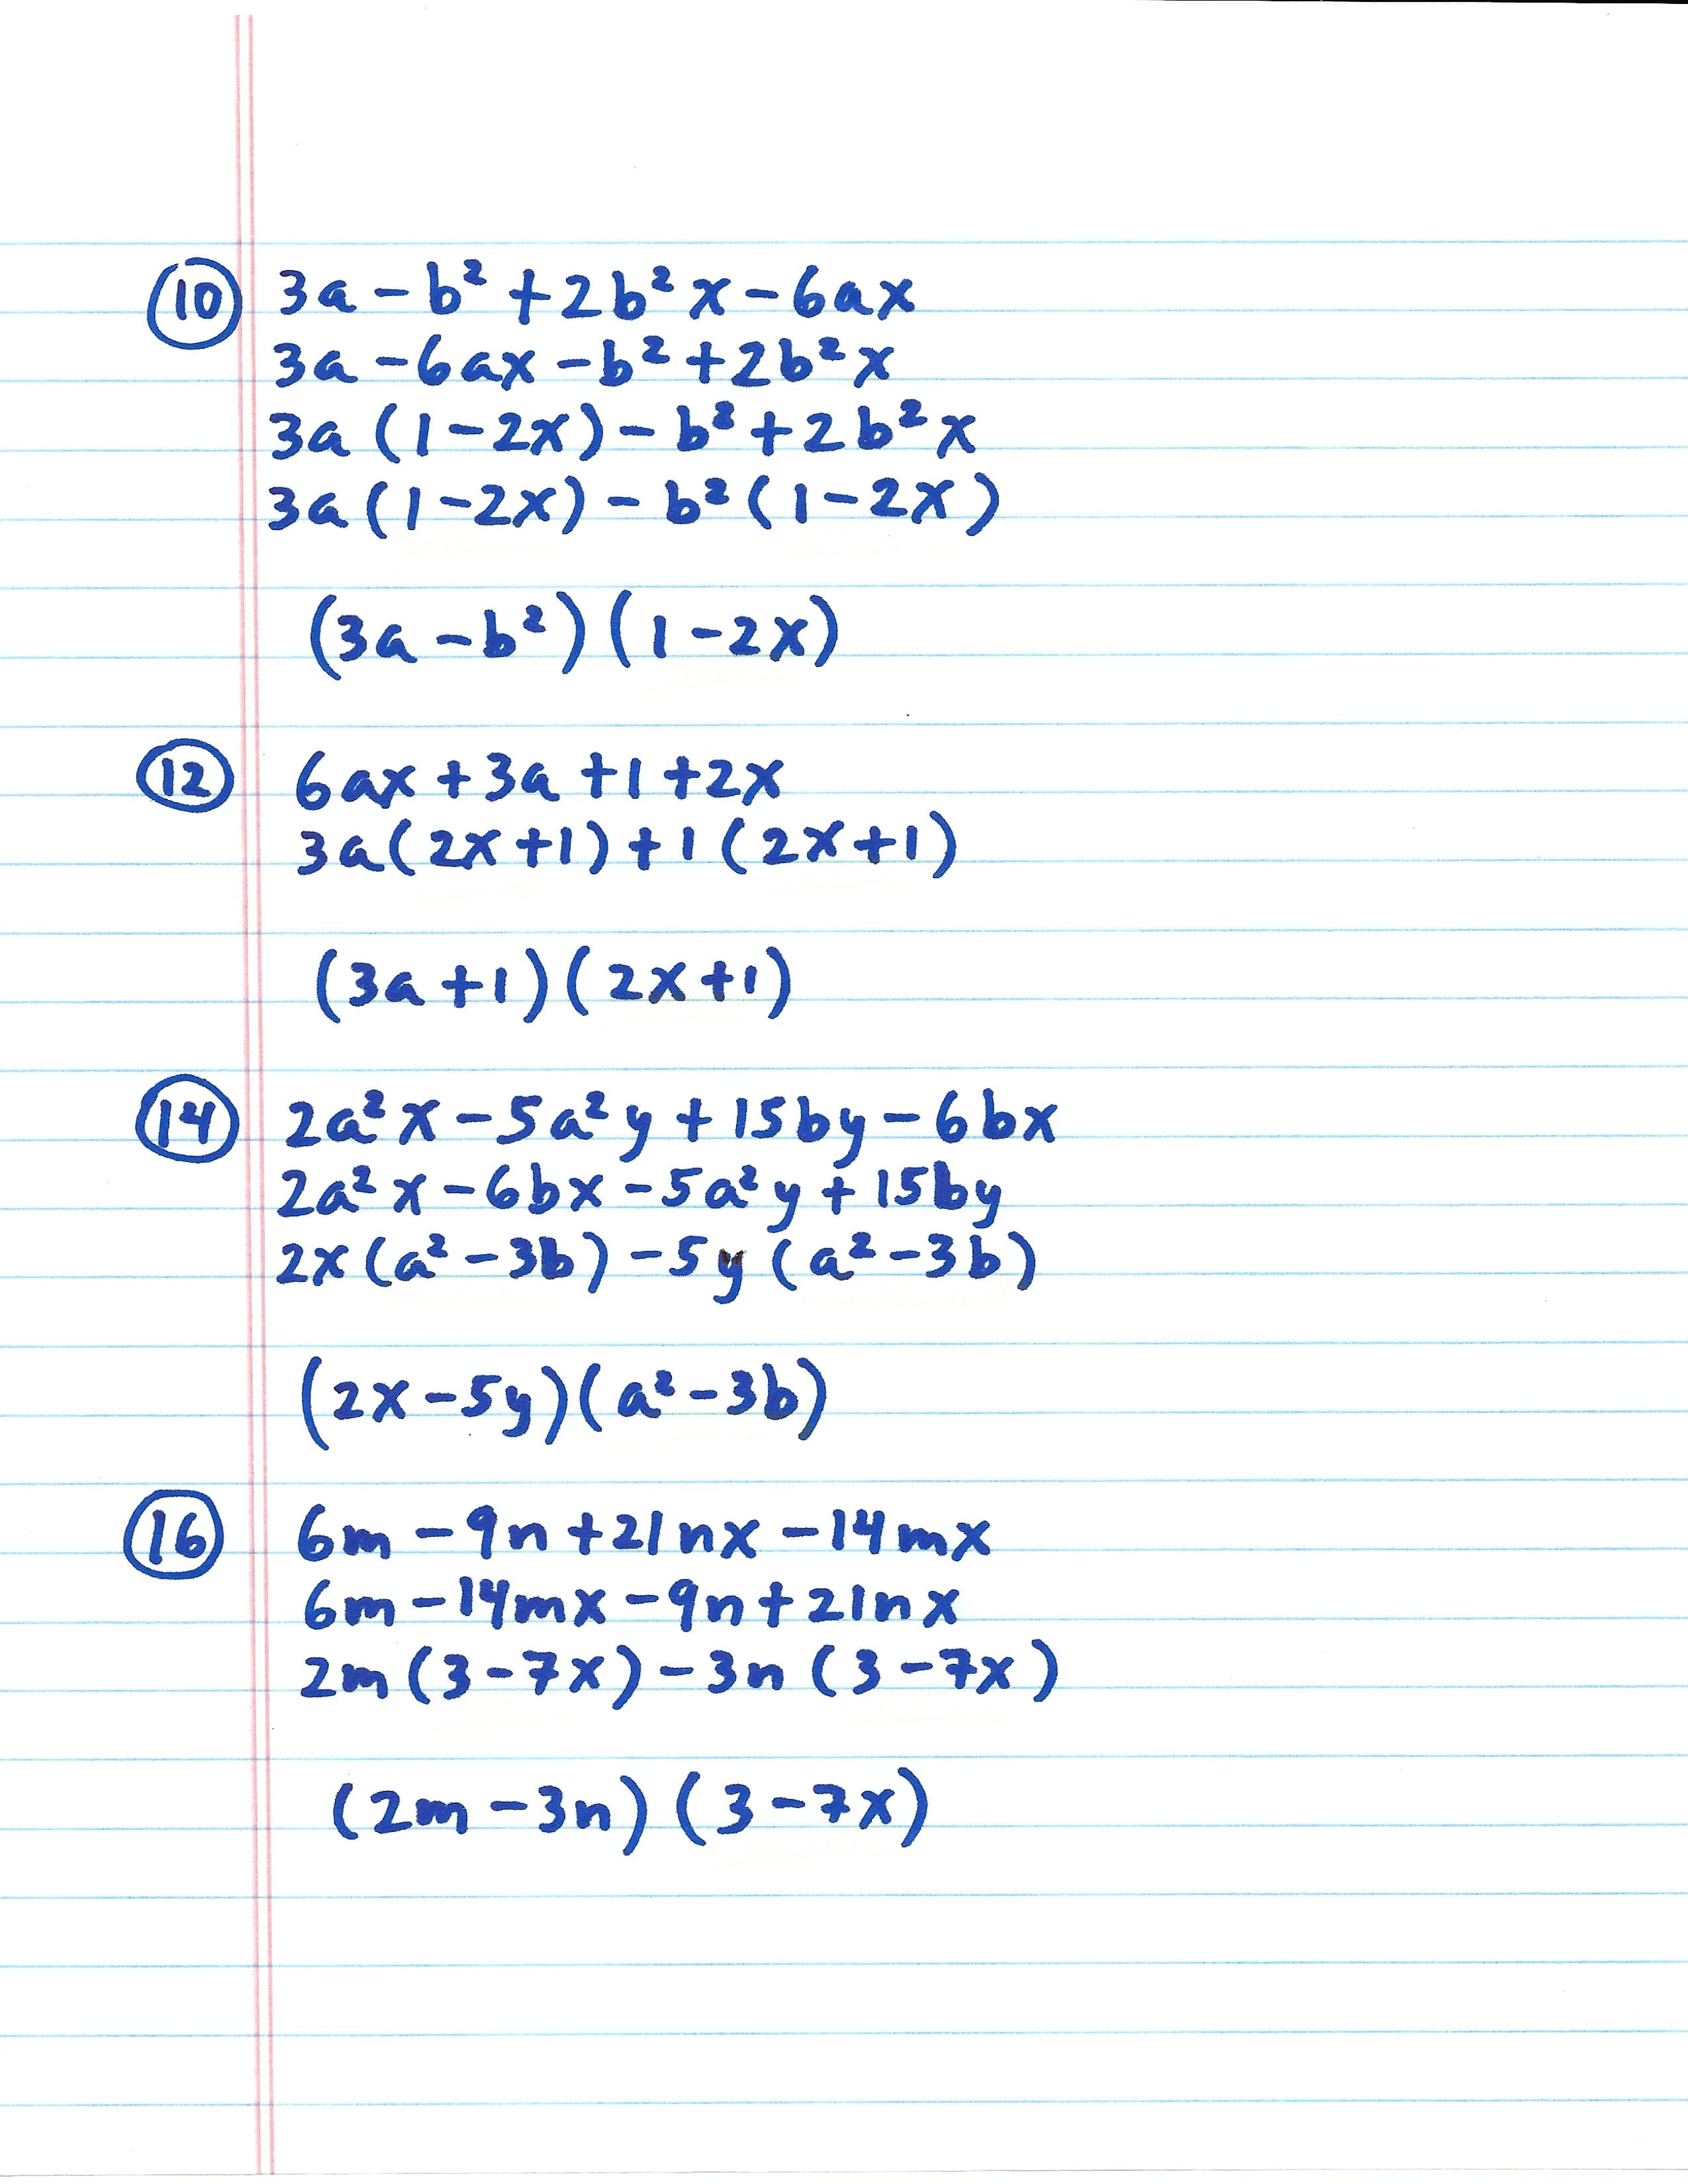 10 3a - b² + 2b²x - 6ax
3a - 6ax - b² + 2b²x
3a (1 - 2x) - b² + 2b²x
3a (1 - 2x) - b² (1 - 2x)
(3a - b²) (1 - 2x)
12 6ax + 3a + 1 + 2x
3a (2x + 1) + 1 (2x + 1)
(3a + 1) (2x + 1)
14 2a²x - 5a²y + 15by - 6bx
2a²x - 6bx - 5a²y + 15by
2x (a² - 3b) - 5y (a² - 3b)
(2x - 5y) (a² - 3b)
16 6m - 9n + 21nx - 14mx
6m - 14mx - 9n + 21nx
2m (3 - 7x) - 3n (3 - 7x)
(2m - 3n) (3 - 7x)